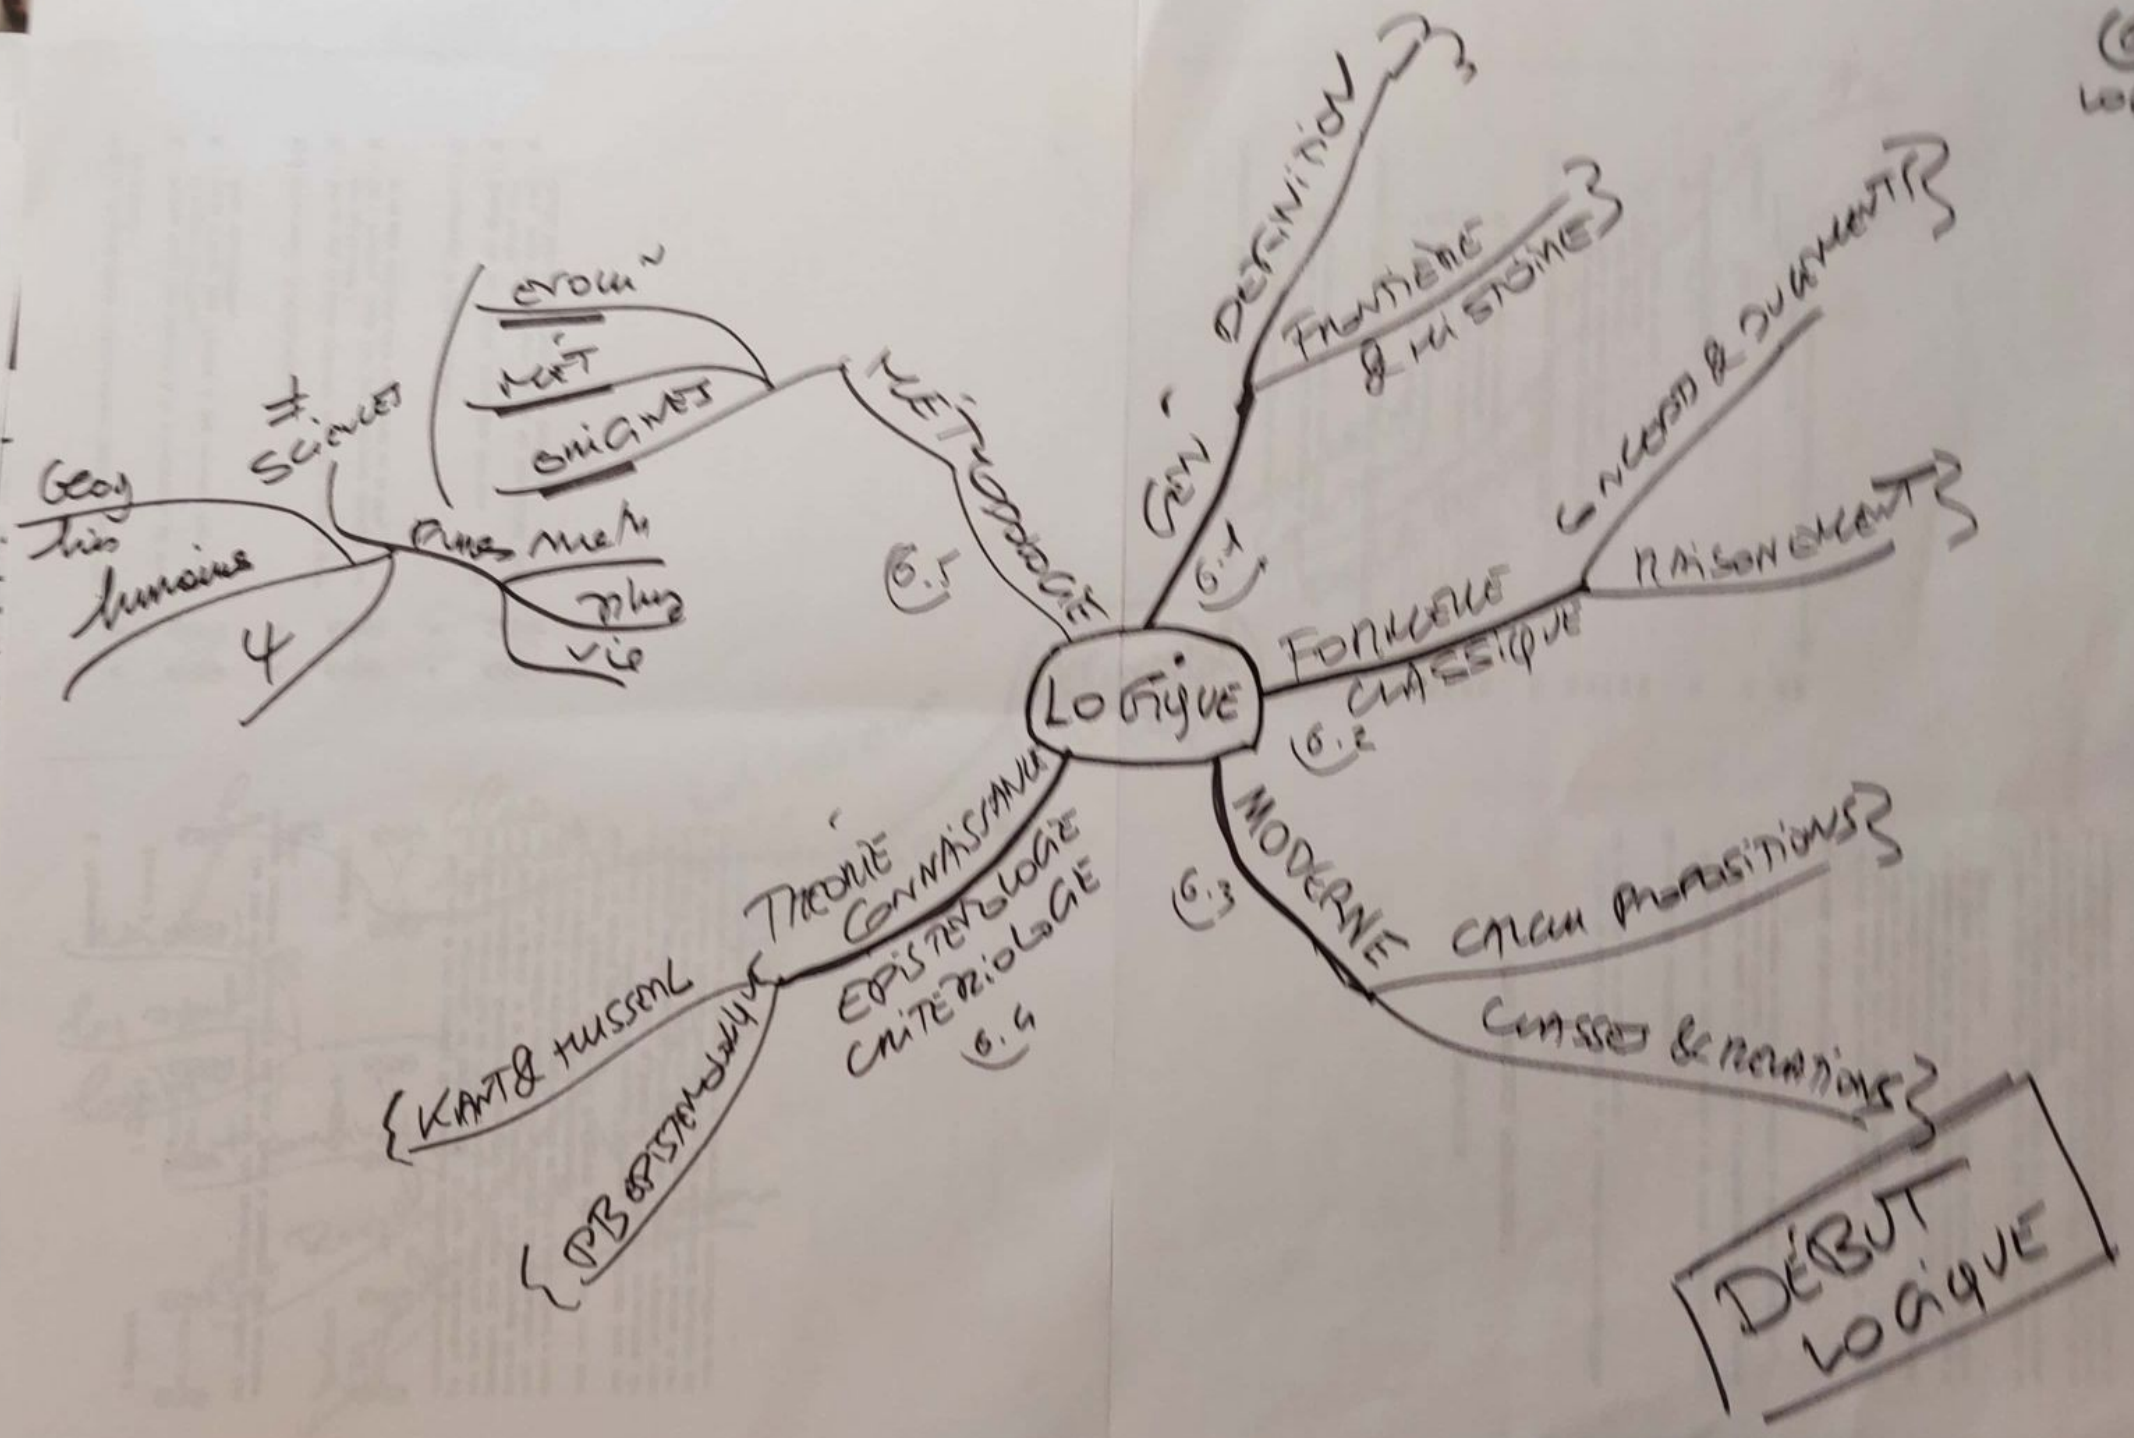 LOGIQUE
GÉN
6.1
DÉFINITION
FRONTIÈRE
& HISTOIRE
FORMELLE
CLASSIQUE
6.2
CONCEPTS & JUGEMENT
RAISONEMENT
MODERNE
6.3
CALCUL PROPOSITIONS
CLASSES & RELATIONS
DÉBUT
LOGIQUE
THÉORIE
CONNAISSANCE
ÉPISTEMOLOGIE
CRITERIOLOGIE
6.4
KANT & HUSSERL
PB EPISTEMOLOGIQUE
MÉTHODOLOGIE
6.5
MÉT
ORIGINES
≠
SCIENCES
Pures
Math
Phys
Vie
Geog
his
humaine
4